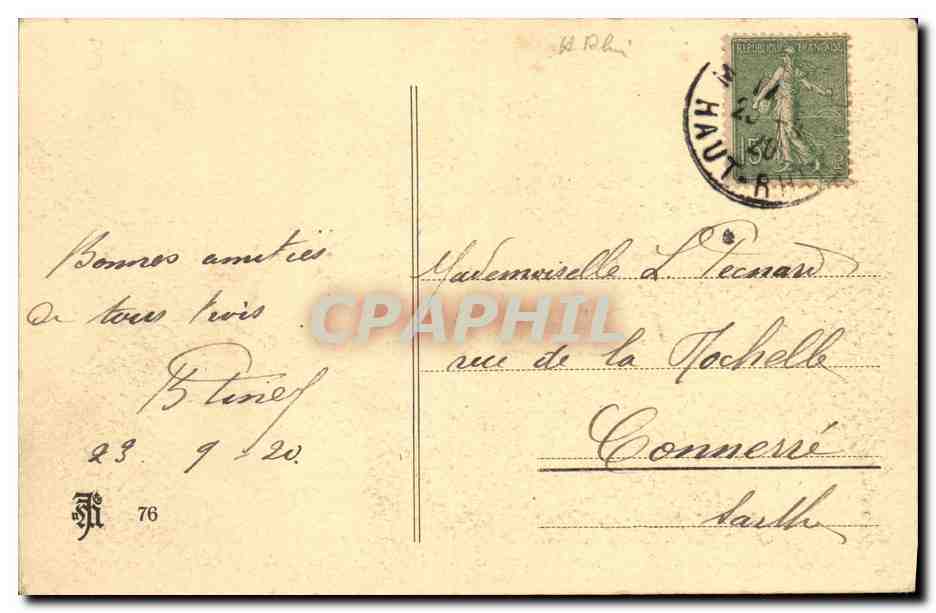 H Rhin
REPUBLIQUE FRANÇAISE
15
HAUT-RHIN
Bonnes amitiés
de tous trois
23 9 20
76
Mademoiselle L Pecnard
rue de la Rochelle
Connerré
Sarthe
CPAPHIL